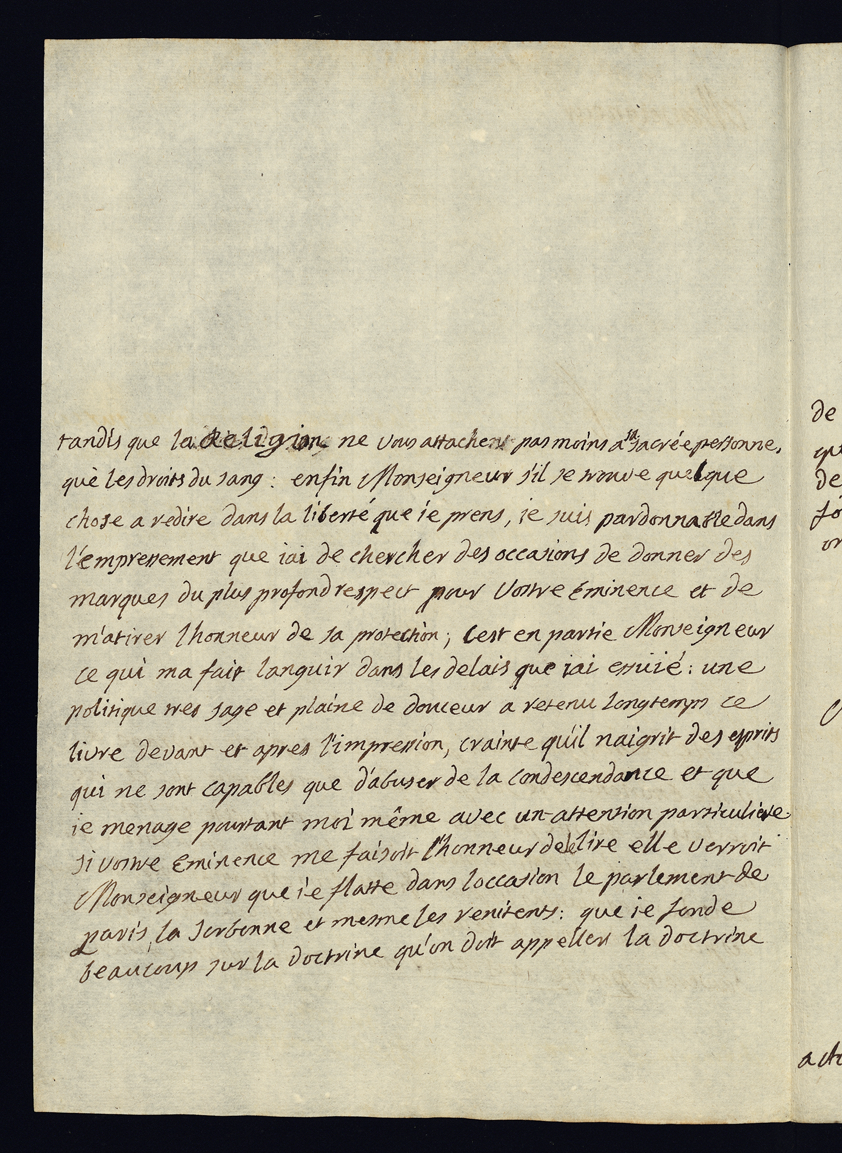 tandis que la Religion ne vous attachent pas moins a sa sacrée personne,
que les droits du sang : enfin Monseigneur s'il se trouve quelque
chose a redire dans la liberté que ie prens, ie suis pardonnable dans
l'empressement que iai de chercher des occasions de donner des
marques du plus profond respect pour Vostre Eminence et de
m'atirer l'honneur de sa protection ; c'est en partie Monseigneur
ce qui ma fait languir dans les delais que iai essuié : une
politique tres sage et plaine de douceur a retenu longtemps ce
livre devant et apres l'impression, crainte qu'il naigrit des esprits
qui ne sont capables que d'abuser de la condescendance et que
ie menage pourtant moi même avec un attention particuliere
si vostre Eminence me faisoit l'honneur de le lire elle verroit
Monseigneur que ie flatte dans loccasion le parlement de
paris, la Sorbonne et mesme les renitents : que ie fonde
beaucoup sur la doctrine qu'on doit appeller la doctrine
de
de
a